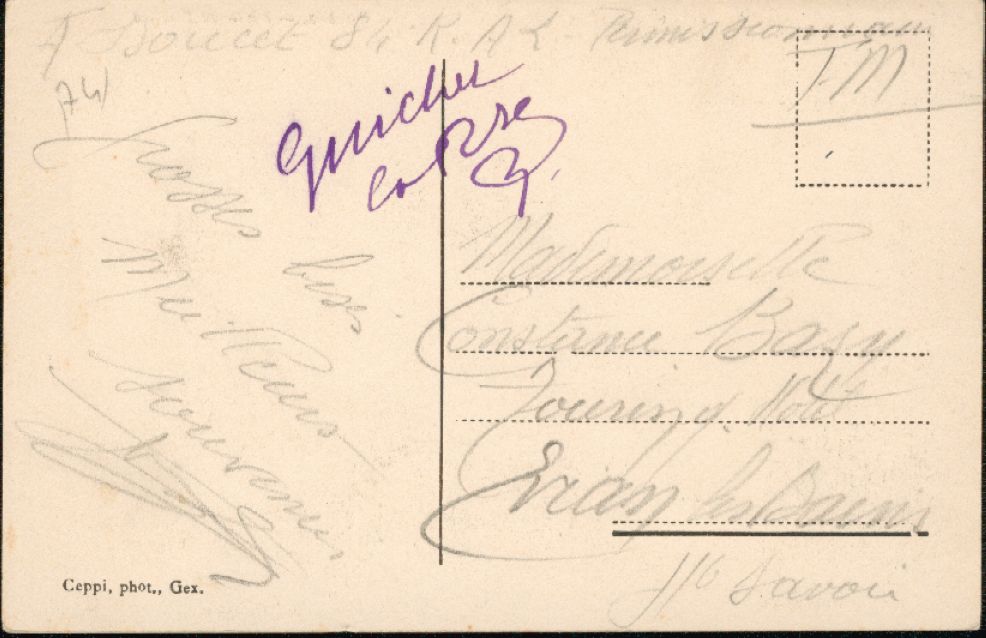 Doucet 84 R. A L - Permissionnaire
FM
74
Guichet
Grosses bises
Meilleurs
souvenirs
Mademoiselle
Constance Bazy
Touring Hotel
Evian les Bains
Hte Savoie
Ceppi, phot., Gex.